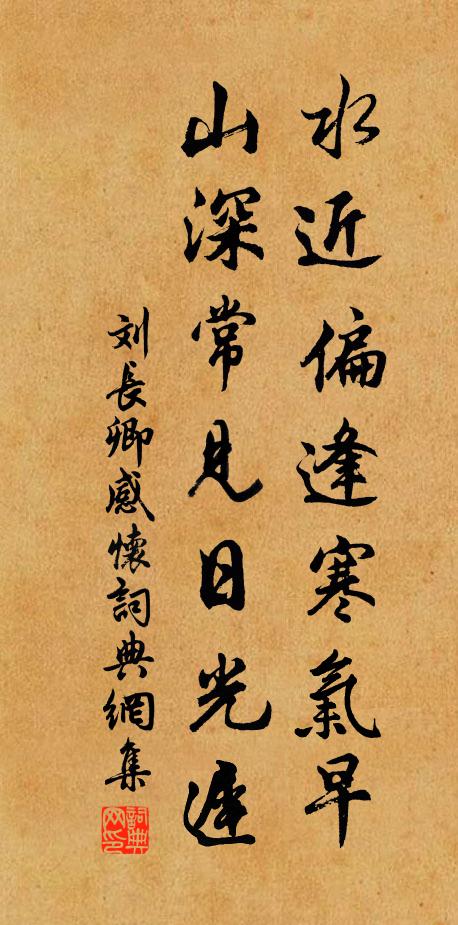 水近偏逢寒氣早
山深常見日光遲
刘長卿感懷詞典網集
詞典网印